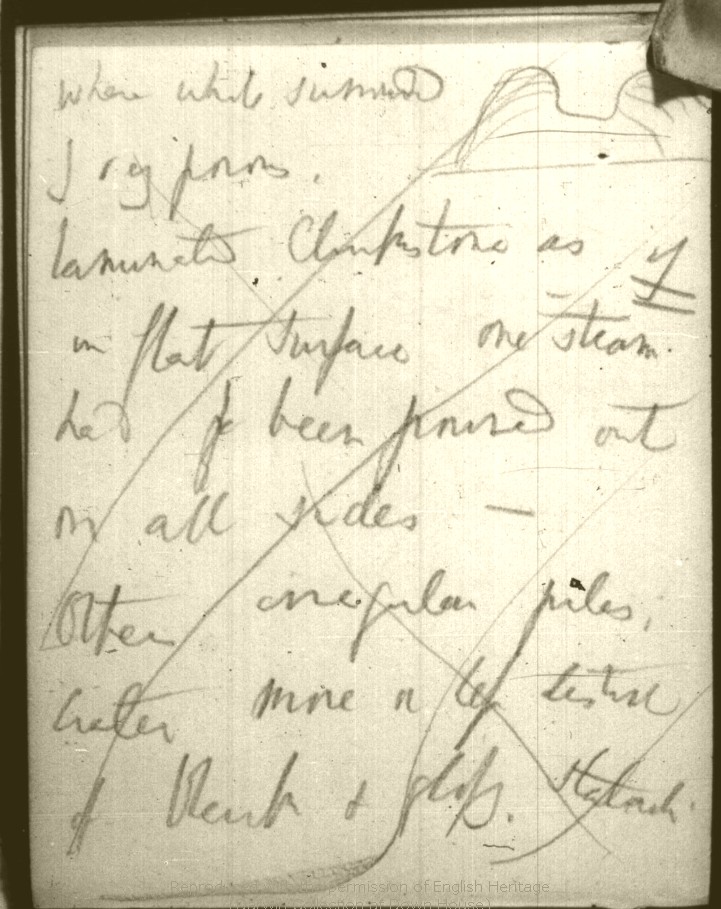 where white summit
of
laminated Clinkstone as if
on flat surface one steam.
had been poured out
on all sides —
Other irregular piles,
Crater more or less distinct
of & gloss.
Reproduced with the permission of English Heritage